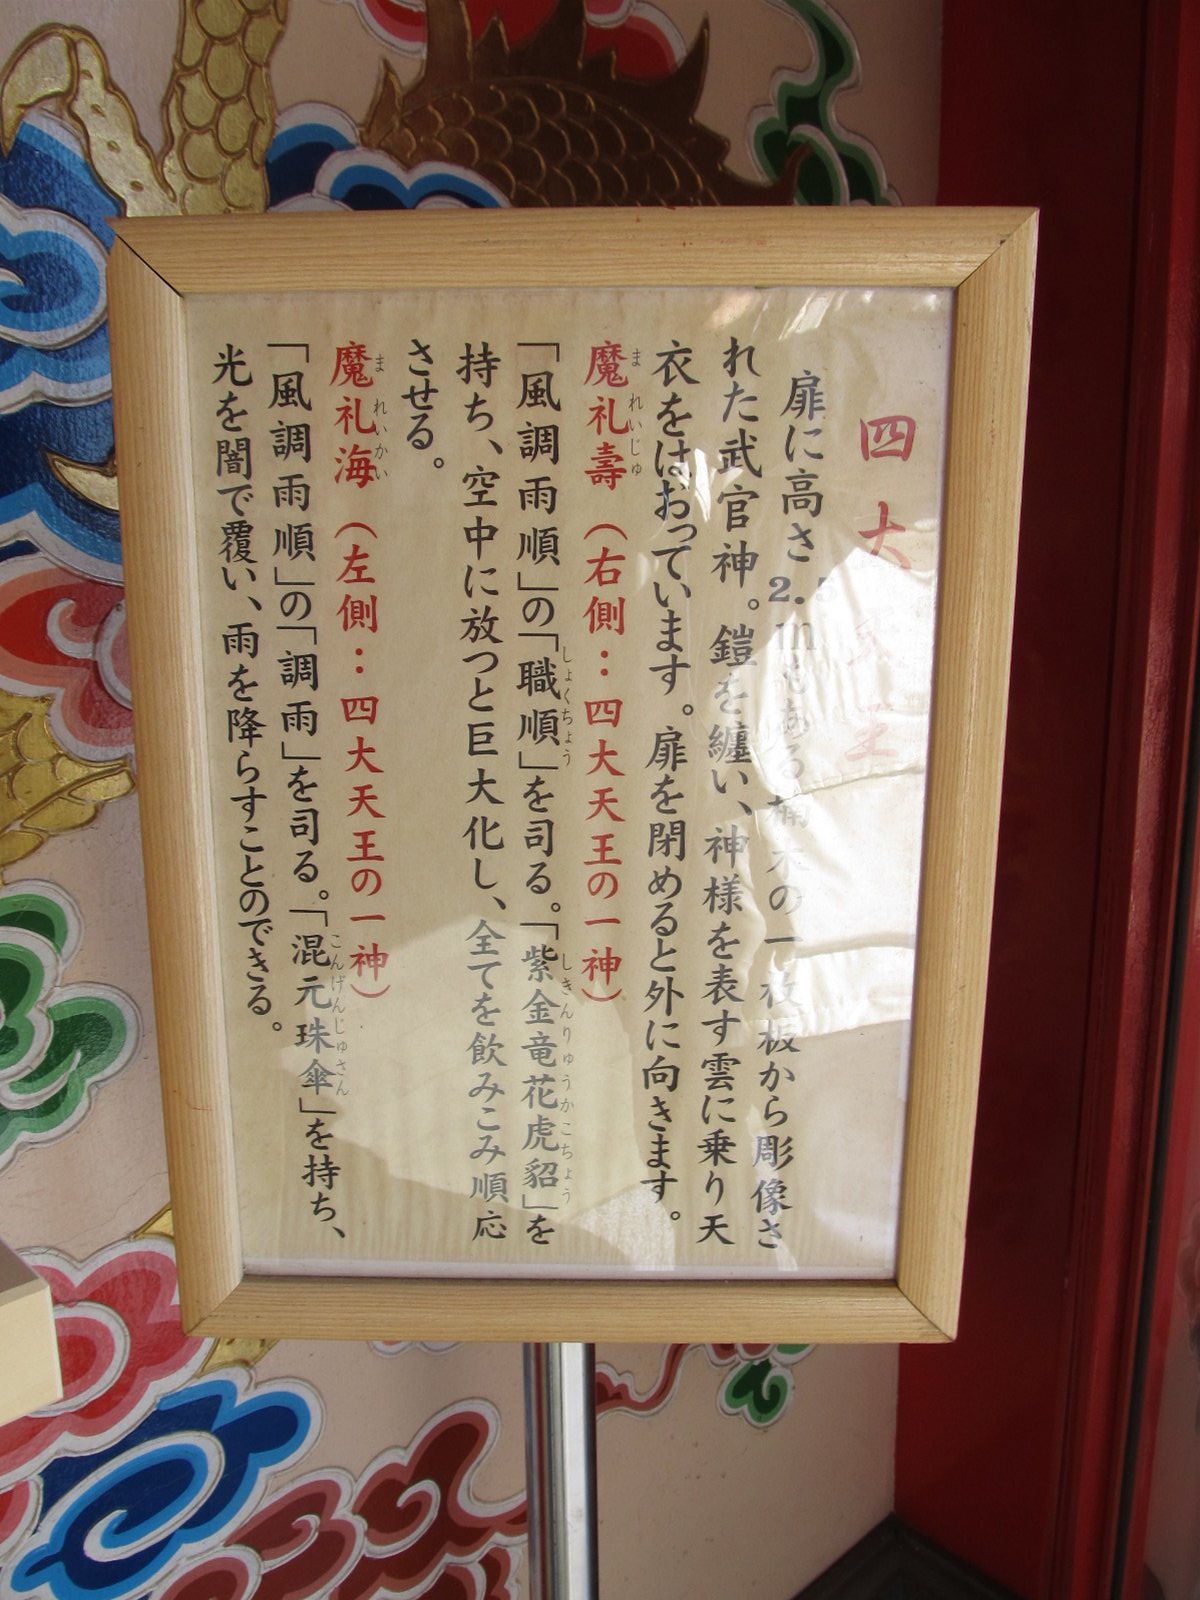 四大天王
扉に高さ2.5mもある楠木の一枚板から彫像さ
れた武官神。鎧を纏い、神様を表す雲に乗り天
衣をはおっています。扉を閉めると外に向きます。
魔礼壽（右側：四大天王の一神）
「風調雨順」の「職順」を司る。「紫金竜花虎貂」を
持ち、空中に放つと巨大化し、全てを飲みこみ順応
させる。
魔礼海（左側：四大天王の一神）
「風調雨順」の「調雨」を司る。「混元珠傘」を持ち、
光を闇で覆い、雨を降らすことのできる。